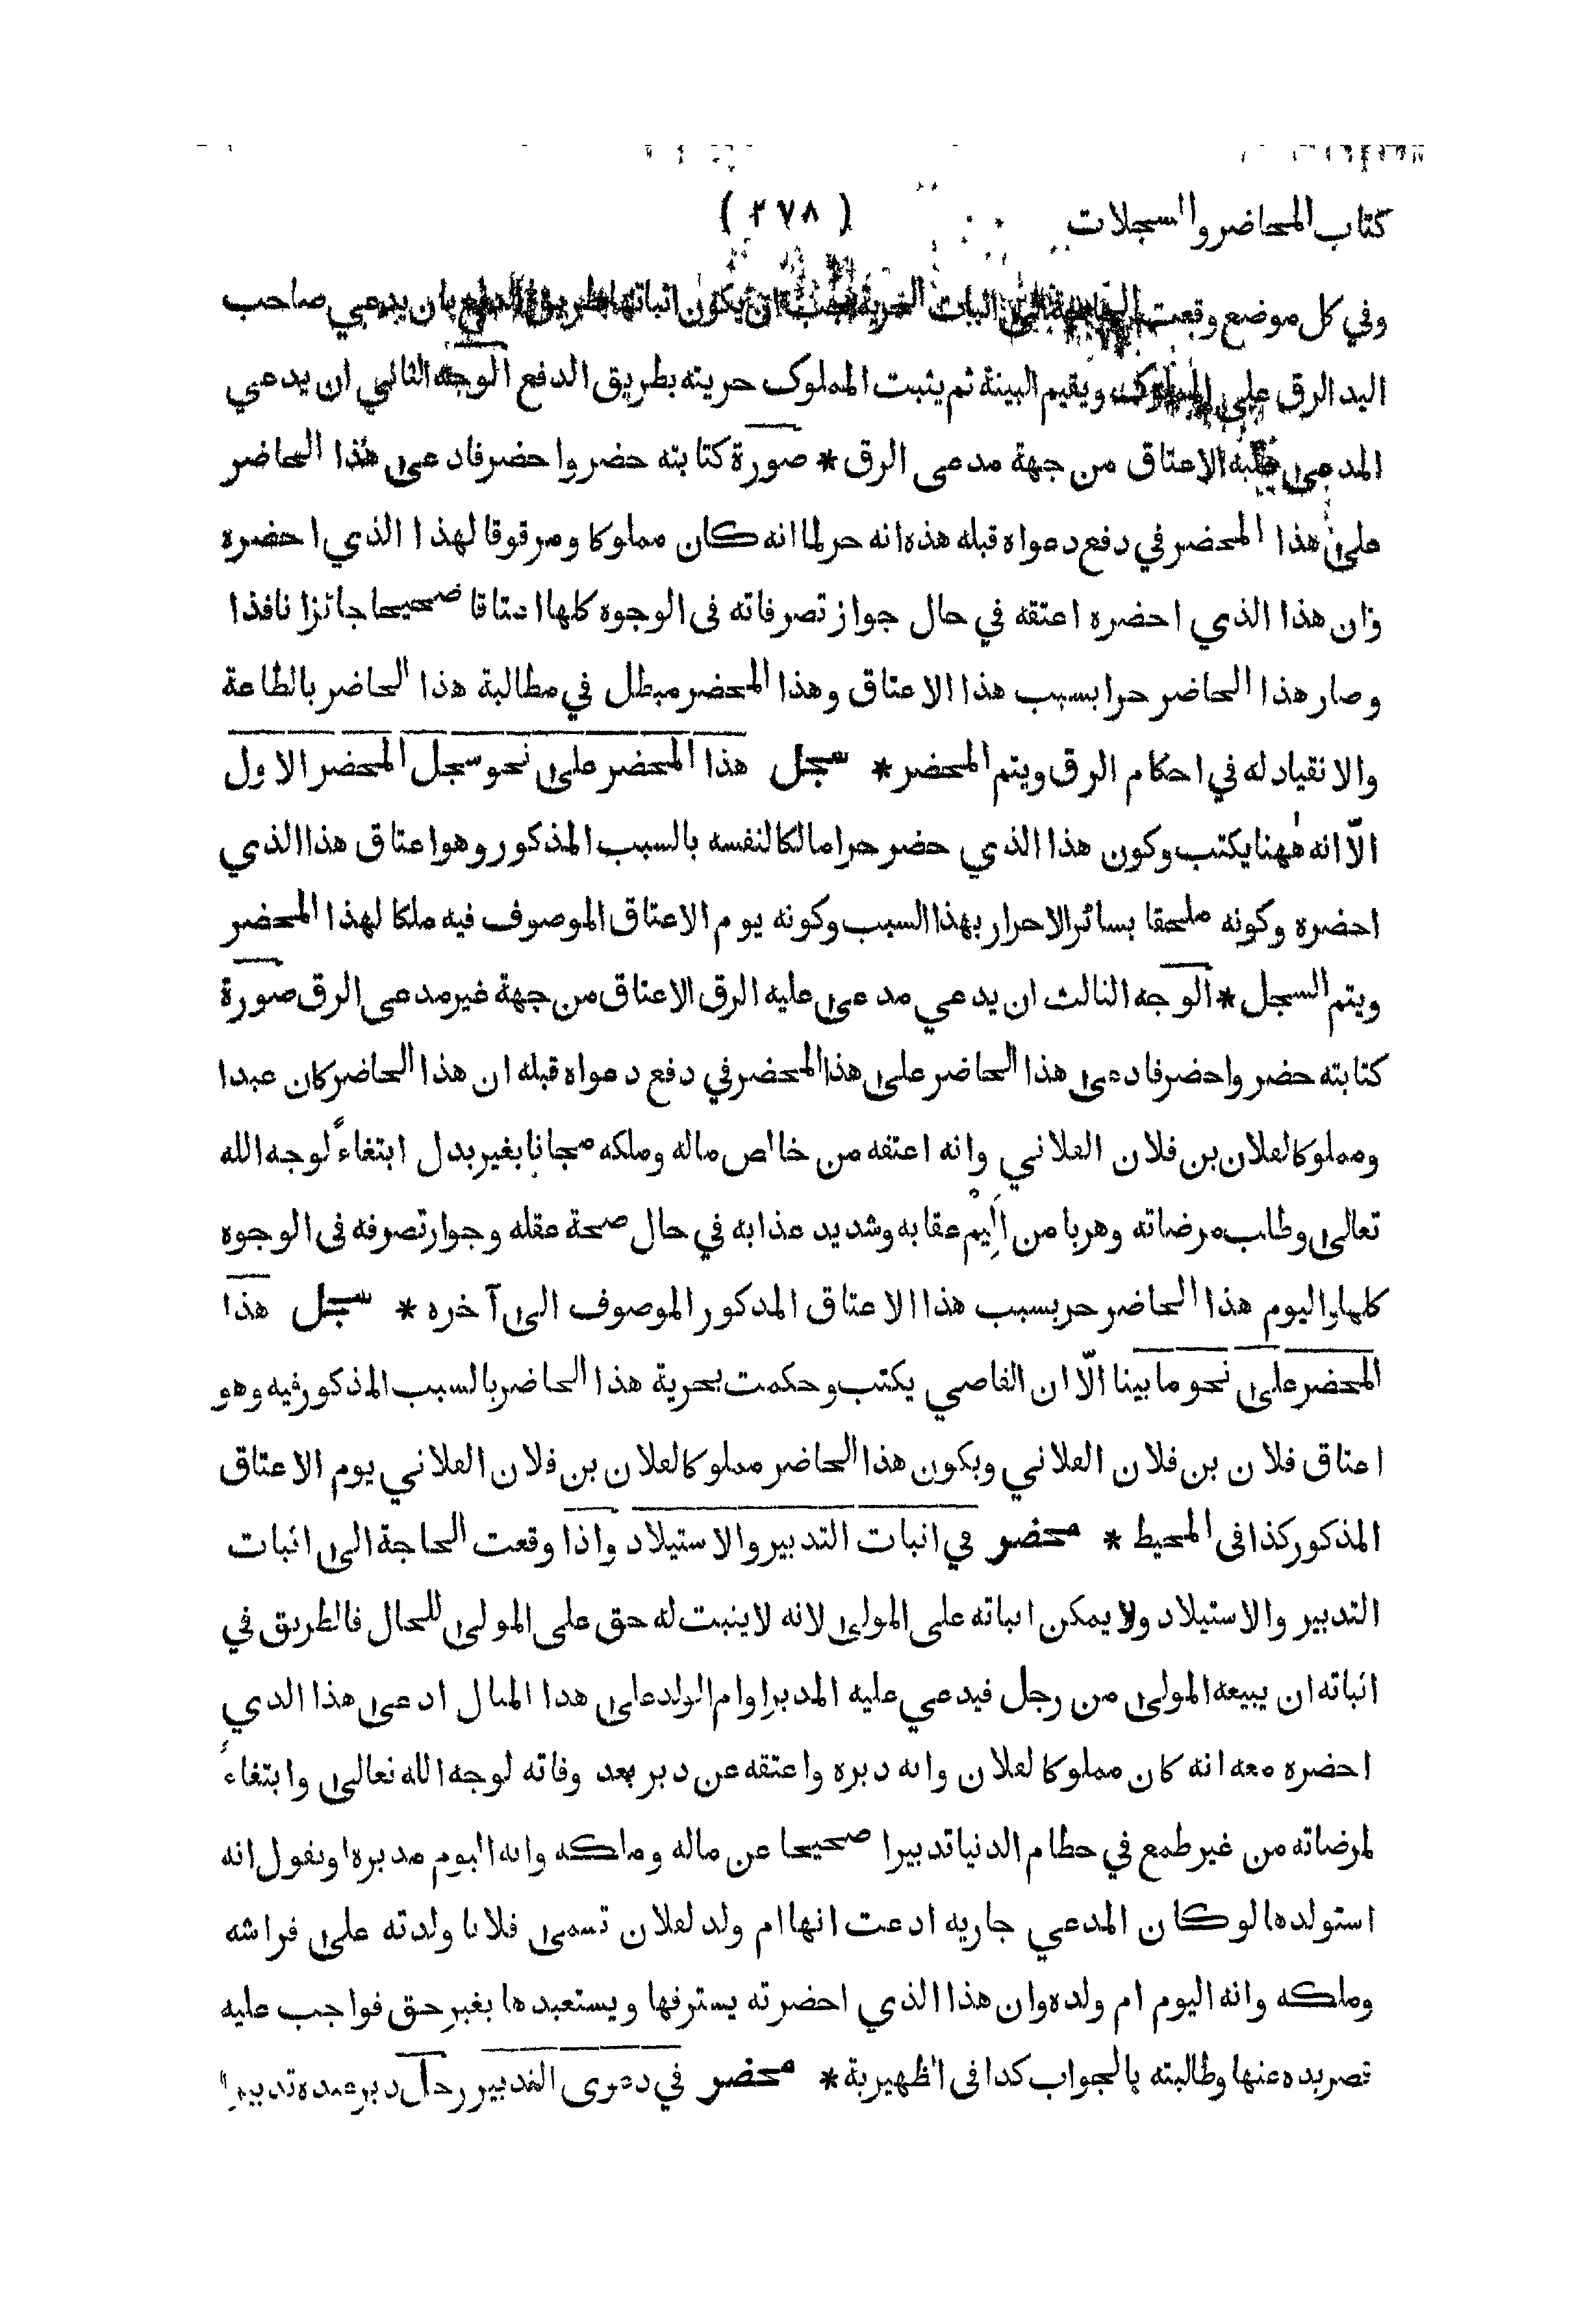 كتاب المحاضر والسجلات
( ٢٧٨ )
وفي كل موضع وقعت الحاجة الى اثبات الحرية يجب ان يكون اثباتها بطريق الدفع بان يدعي صاحب
اليد الرق على المملوك ويقيم البينة ثم يثبت المملوك حريته بطريق الدفع الوجه الثاني ان يدعي
المدعى عليه الاعتاق من جهة مدعى الرق * صورة كتابته حضر واحضر فادعى هذا الحاضر
على هذا المحضر في دفع دعواه قبله هذه انه حر لما انه كان مملوكا ومرقوقا لهذا الذي احضره
وان هذا الذي احضره اعتقه في حال جواز تصرفاته فى الوجوه كلها اعتاقا صحيحا جائزا نافذا
وصار هذا الحاضر حرا بسبب هذا الاعتاق وهذا المحضر مبطل في مطالبة هذا الحاضر بالطاعة
والانقياد له في احكام الرق ويتم المحضر * سجل هذا المحضر على نحو سجل المحضر الاول
الّا انه ههنا يكتب وكون هذا الذي حضر حرا مالكا لنفسه بالسبب المذكور وهو اعتاق هذا الذي
احضره وكونه ملحقا بسائر الاحرار بهذا السبب وكونه يوم الاعتاق الموصوف فيه ملكا لهذا المحضر
ويتم السجل * الوجه الثالث ان يدعي مدعى عليه الرق الاعتاق من جهة غير مدعى الرق صورة
كتابته حضر واحضر فادعى هذا الحاضر على هذا المحضر في دفع دعواه قبله ان هذا الحاضر كان عبدا
ومملوكا لفلان بن فلان الفلاني وانه اعتقه من خالص ماله وملكه مجانا بغير بدل ابتغاءً لوجه الله
تعالى وطلب مرضاته وهربا من اليم عقابه وشديد عذابه في حال صحة عقله وجواز تصرفه فى الوجوه
كلها واليوم هذا الحاضر حر بسبب هذا الاعتاق المذكور الموصوف الى آخره * سجل هذا
المحضر على نحو ما بينا الّا ان القاضي يكتب وحكمت بحرية هذا الحاضر بالسبب المذكور فيه وهو
اعتاق فلان بن فلان الفلاني وبكون هذا الحاضر مملوكا لفلان بن فلان الفلاني يوم الاعتاق
المذكور كذا فى المحيط * محضر في اثبات التدبير والاستيلاد واذا وقعت الحاجة الى اثبات
التدبير والاستيلاد ولا يمكن اثباته على المولى لانه لا يثبت له حق على المولى للحال فالطريق في
اثباته ان يبيعه المولى من رجل فيدعي عليه المدبر او ام الولد على هذا المثال ادعى هذا الذي
احضره معه انه كان مملوكا لفلان وانه دبره واعتقه عن دبر بعد وفاته لوجه الله تعالى وابتغاءً
لمرضاته من غير طمع في حطام الدنيا تدبيرا صحيحا عن ماله وملكه وانه اليوم مدبره او نقول انه
استولدها لو كان المدعي جارية ادعت انها ام ولد لفلان تسمى فلانا ولدته على فراشه
وملكه وانه اليوم ام ولده وان هذا الذي احضرته يسترقها ويستعبدها بغير حق فواجب عليه
قصر يده عنها وطالبته بالجواب كذا فى الظهيرية * محضر في دعوى التدبير رجل دبر عبده تدبيرا